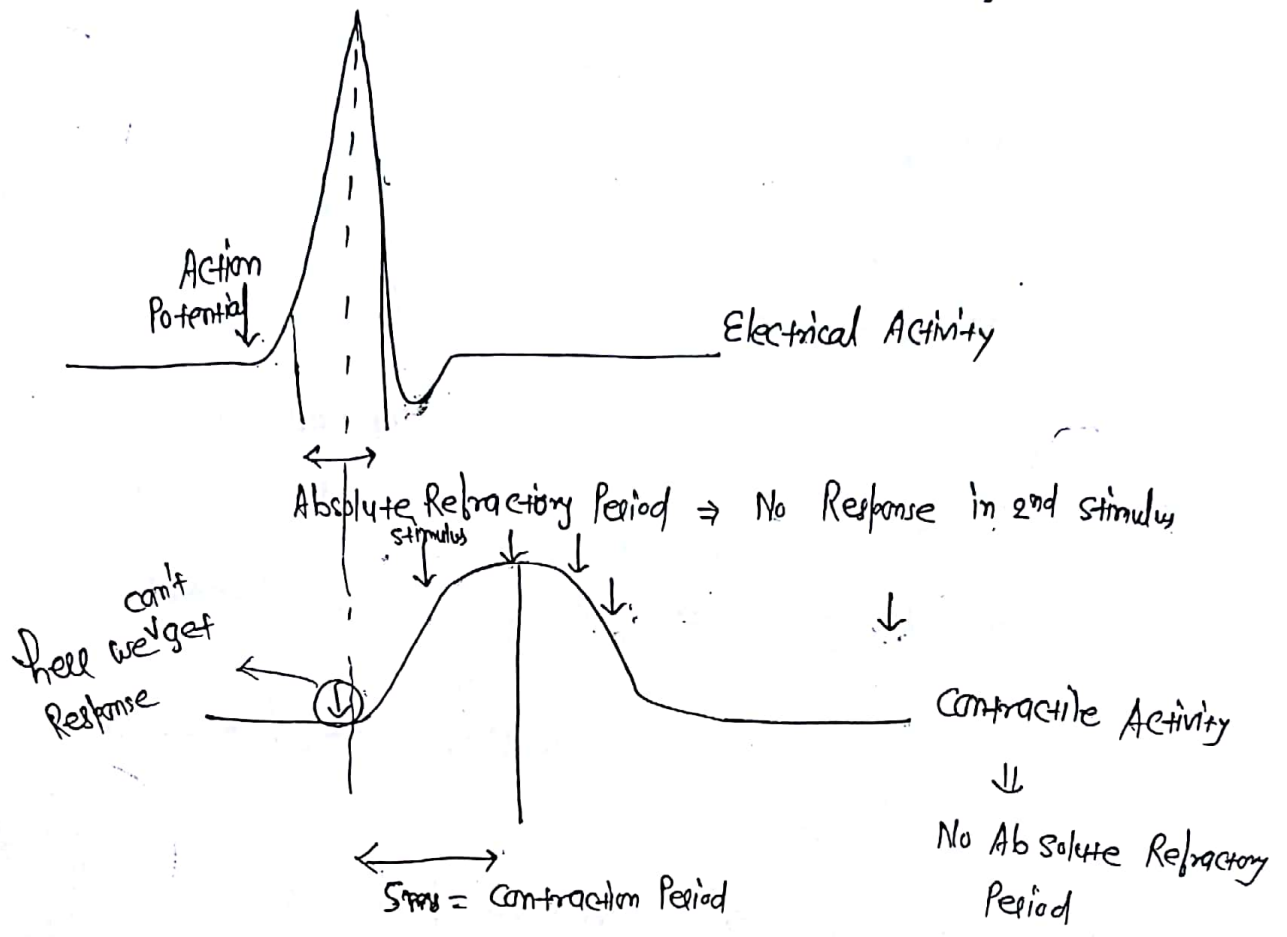 Action
Potential
Electrical Activity
Absolute Refractory Period ⇒ No Response in 2nd stimulus
stimulus
can't
here we get
Response
Contractile Activity
⇓
No Absolute Refractory
Period
= Contraction Period